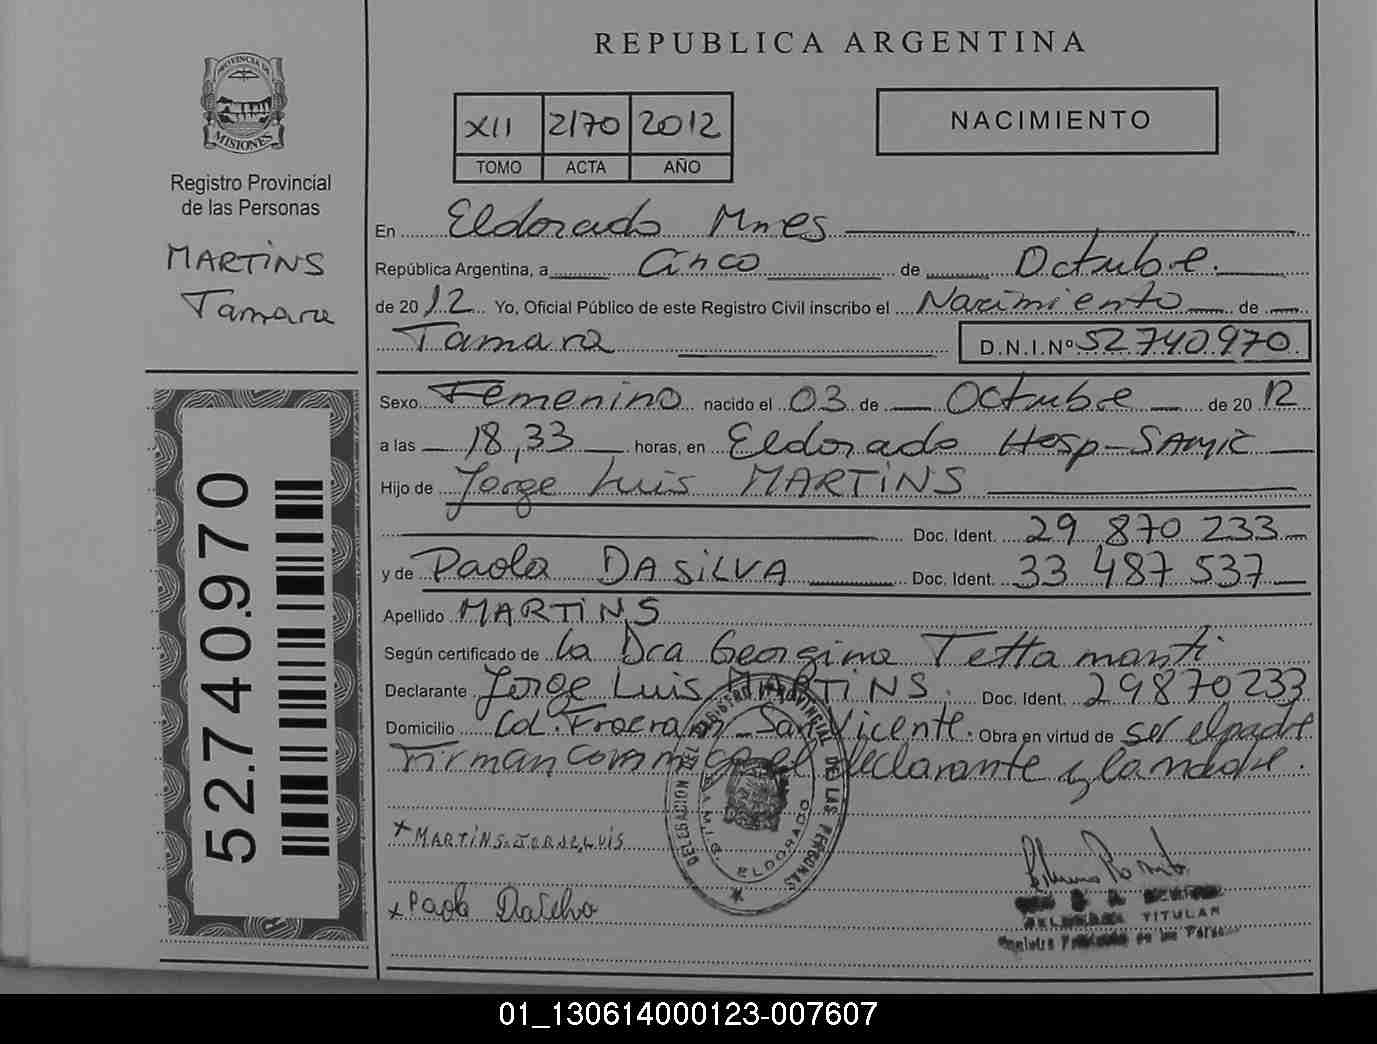 REPUBLICA ARGENTINA
PROVINCIA DE
MISIONES
Registro Provincial
de las Personas
MARTINS
Tamara
XII 2170 2012
TOMO ACTA AÑO
NACIMIENTO
En Eldorado Mnes
República Argentina, a Cinco de Octubre.
de 2012 Yo, Oficial Público de este Registro Civil inscribo el Nacimiento de
Tamara D.N.I.Nº 52740970
Sexo Femenino nacido el 03 de Octubre de 2012
a las 18,33 horas, en Eldorado Hosp-SAMIC
Hijo de Jorge Luis MARTINS
Doc. Ident. 29 870 233
y de Paola DASILVA Doc. Ident. 33 487 537
Apellido MARTINS
Según certificado de la Dra Georgina Tettamanti
Declarante Jorge Luis MARTINS. Doc. Ident. 29870233
Domicilio Col. San Vicente. Obra en virtud de ser el padre
Firman conmigo el declarante y la madre.
DELEGACION DEL REGISTRO PROVINCIAL DE LAS PERSONAS
S.A.M.I.C. ELDORADO
x MARTINS JORGE LUIS
x Paola Dasilva
TITULAR
52.740.970
01_130614000123-007607